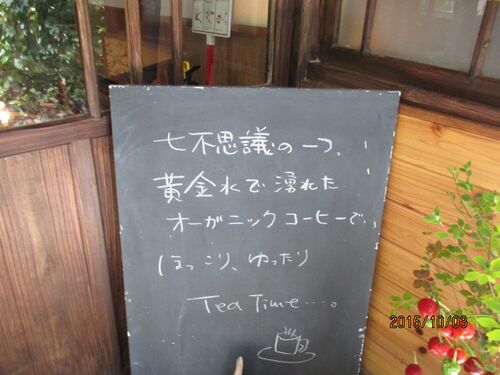 七不思議の一つ、
黄金水で湧れた
オーガニックコーヒーで、
ほっこり、ゆったり
Tea Time....。
2015/10/03